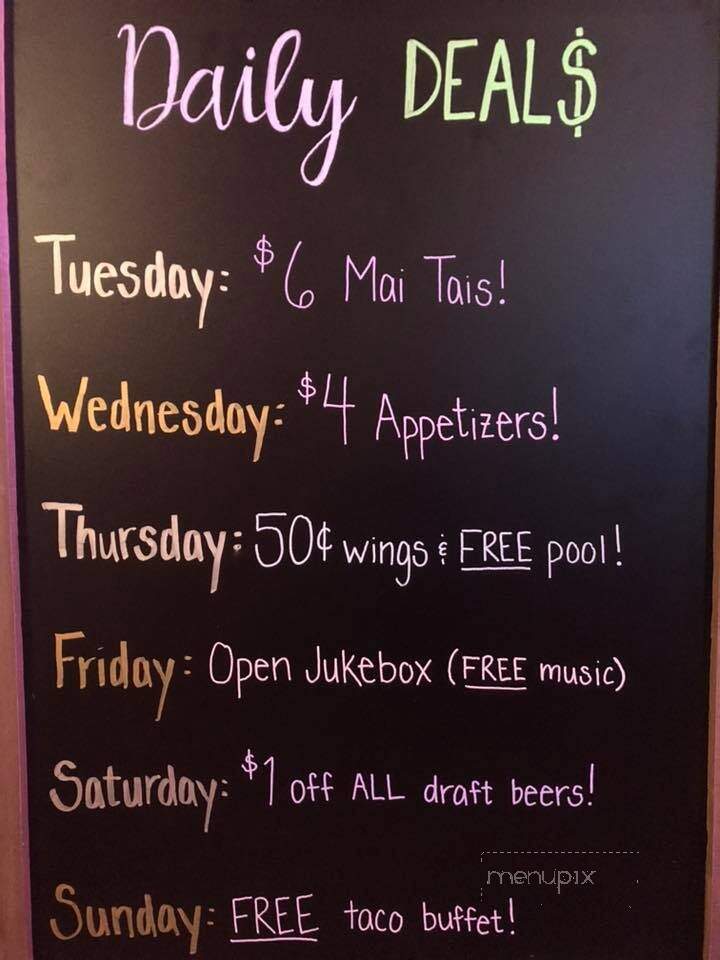 Daily DEAL$
Tuesday: $6 Mai Tais!
Wednesday: $4 Appetizers!
Thursday: 50¢ wings & FREE pool!
Friday: Open Jukebox (FREE music)
Saturday: $1 off ALL draft beers!
menupix
Sunday: FREE taco buffet!